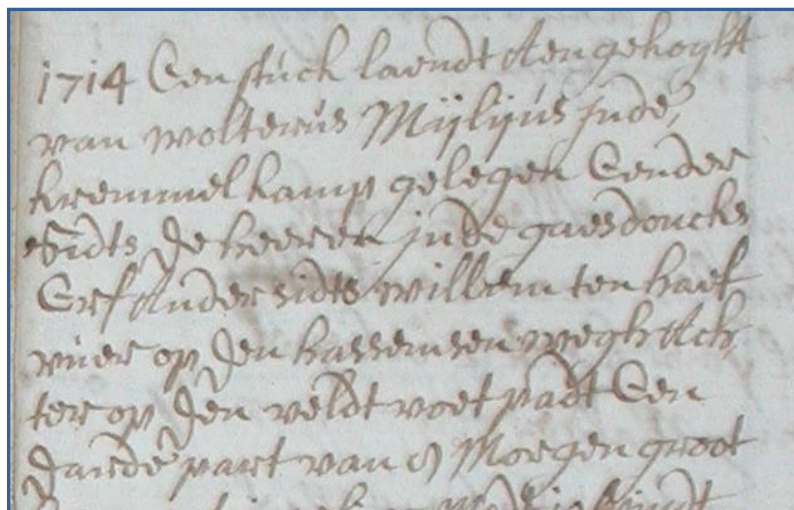 1714 Een stuck laendt aengekogkt
van wolterus Mijlijus inde
kremmelkamp gelegen Eender
sidts de heeren inde gaesdoncks
Erf ander sidts willem ten haef
vuer op den hassemsen wegh Ach
ter op den veldt voet padt Een
darde part van 9 Morgen groot